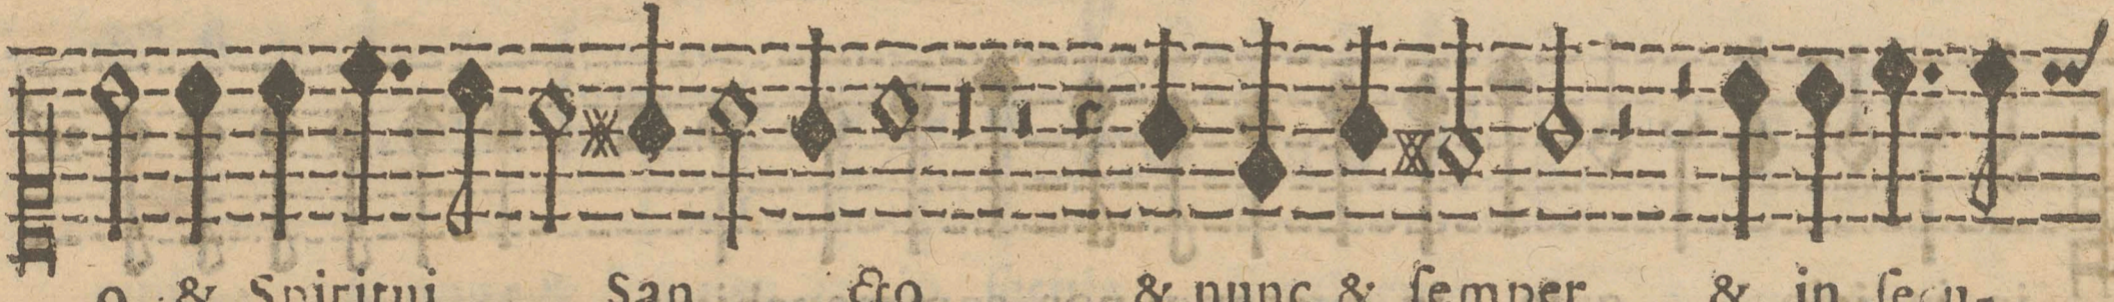 o & Spiritui San cto & nunc & ſemper & in ſecu-